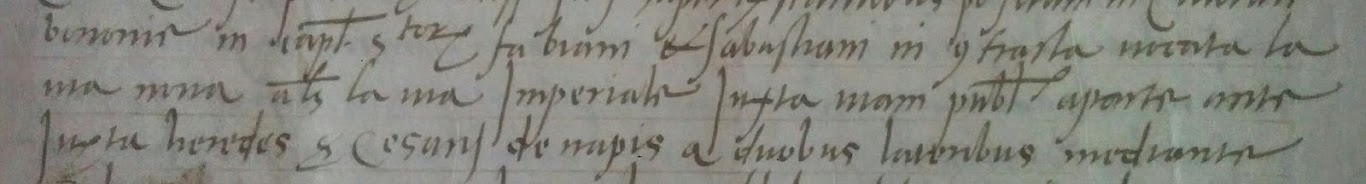 bononie in capl. s. torz fabiani & sabastiani in 9 trasta vocata la
via nova als la via Imperiale Juxta viam publ. aparte ante
Juxta heredes q Cesaris de napis a duobus lateribus mediante